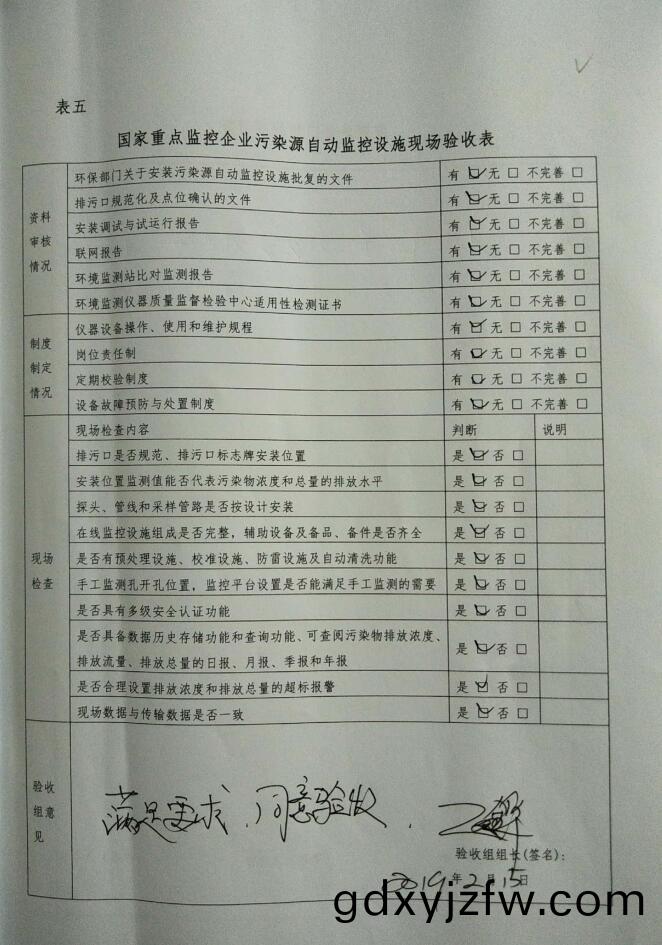 表五
国家重点监控企业污染源自动监控设施现场验收表
资料审核情况
环保部门关于安装污染源自动监控设施批复的文件 有 ☑ 无 □ 不完善 □
排污口规范化及点位确认的文件 有 ☑ 无 □ 不完善 □
安装调试与试运行报告 有 ☑ 无 □ 不完善 □
联网报告 有 ☑ 无 □ 不完善 □
环境监测站比对监测报告 有 ☑ 无 □ 不完善 □
环境监测仪器质量监督检验中心适用性检测证书 有 ☑ 无 □ 不完善 □
制度制定情况
仪器设备操作、使用和维护规程 有 ☑ 无 □ 不完善 □
岗位责任制 有 ☑ 无 □ 不完善 □
定期校验制度 有 ☑ 无 □ 不完善 □
设备故障预防与处置制度 有 ☑ 无 □ 不完善 □
现场检查
现场检查内容 判断 说明
排污口是否规范、排污口标志牌安装位置 是 ☑ 否 □
安装位置监测值能否代表污染物浓度和总量的排放水平 是 ☑ 否 □
探头、管线和采样管路是否按设计安装 是 ☑ 否 □
在线监控设施组成是否完整，辅助设备及备品、备件是否齐全 是 ☑ 否 □
是否有预处理设施、校准设施、防雷设施及自动清洗功能 是 ☑ 否 □
手工监测孔开孔位置，监控平台设置是否能满足手工监测的需要 是 ☑ 否 □
是否具有多级安全认证功能 是 ☑ 否 □
是否具备数据历史存储功能和查询功能、可查阅污染物排放浓度、
排放流量、排放总量的日报、月报、季报和年报 是 ☑ 否 □
是否合理设置排放浓度和排放总量的超标报警 是 ☑ 否 □
现场数据与传输数据是否一致 是 ☑ 否 □
验收组意见
满足要求，同意验收.
验收组组长(签名)：
2019年2月15日
gdxyjzfw.com